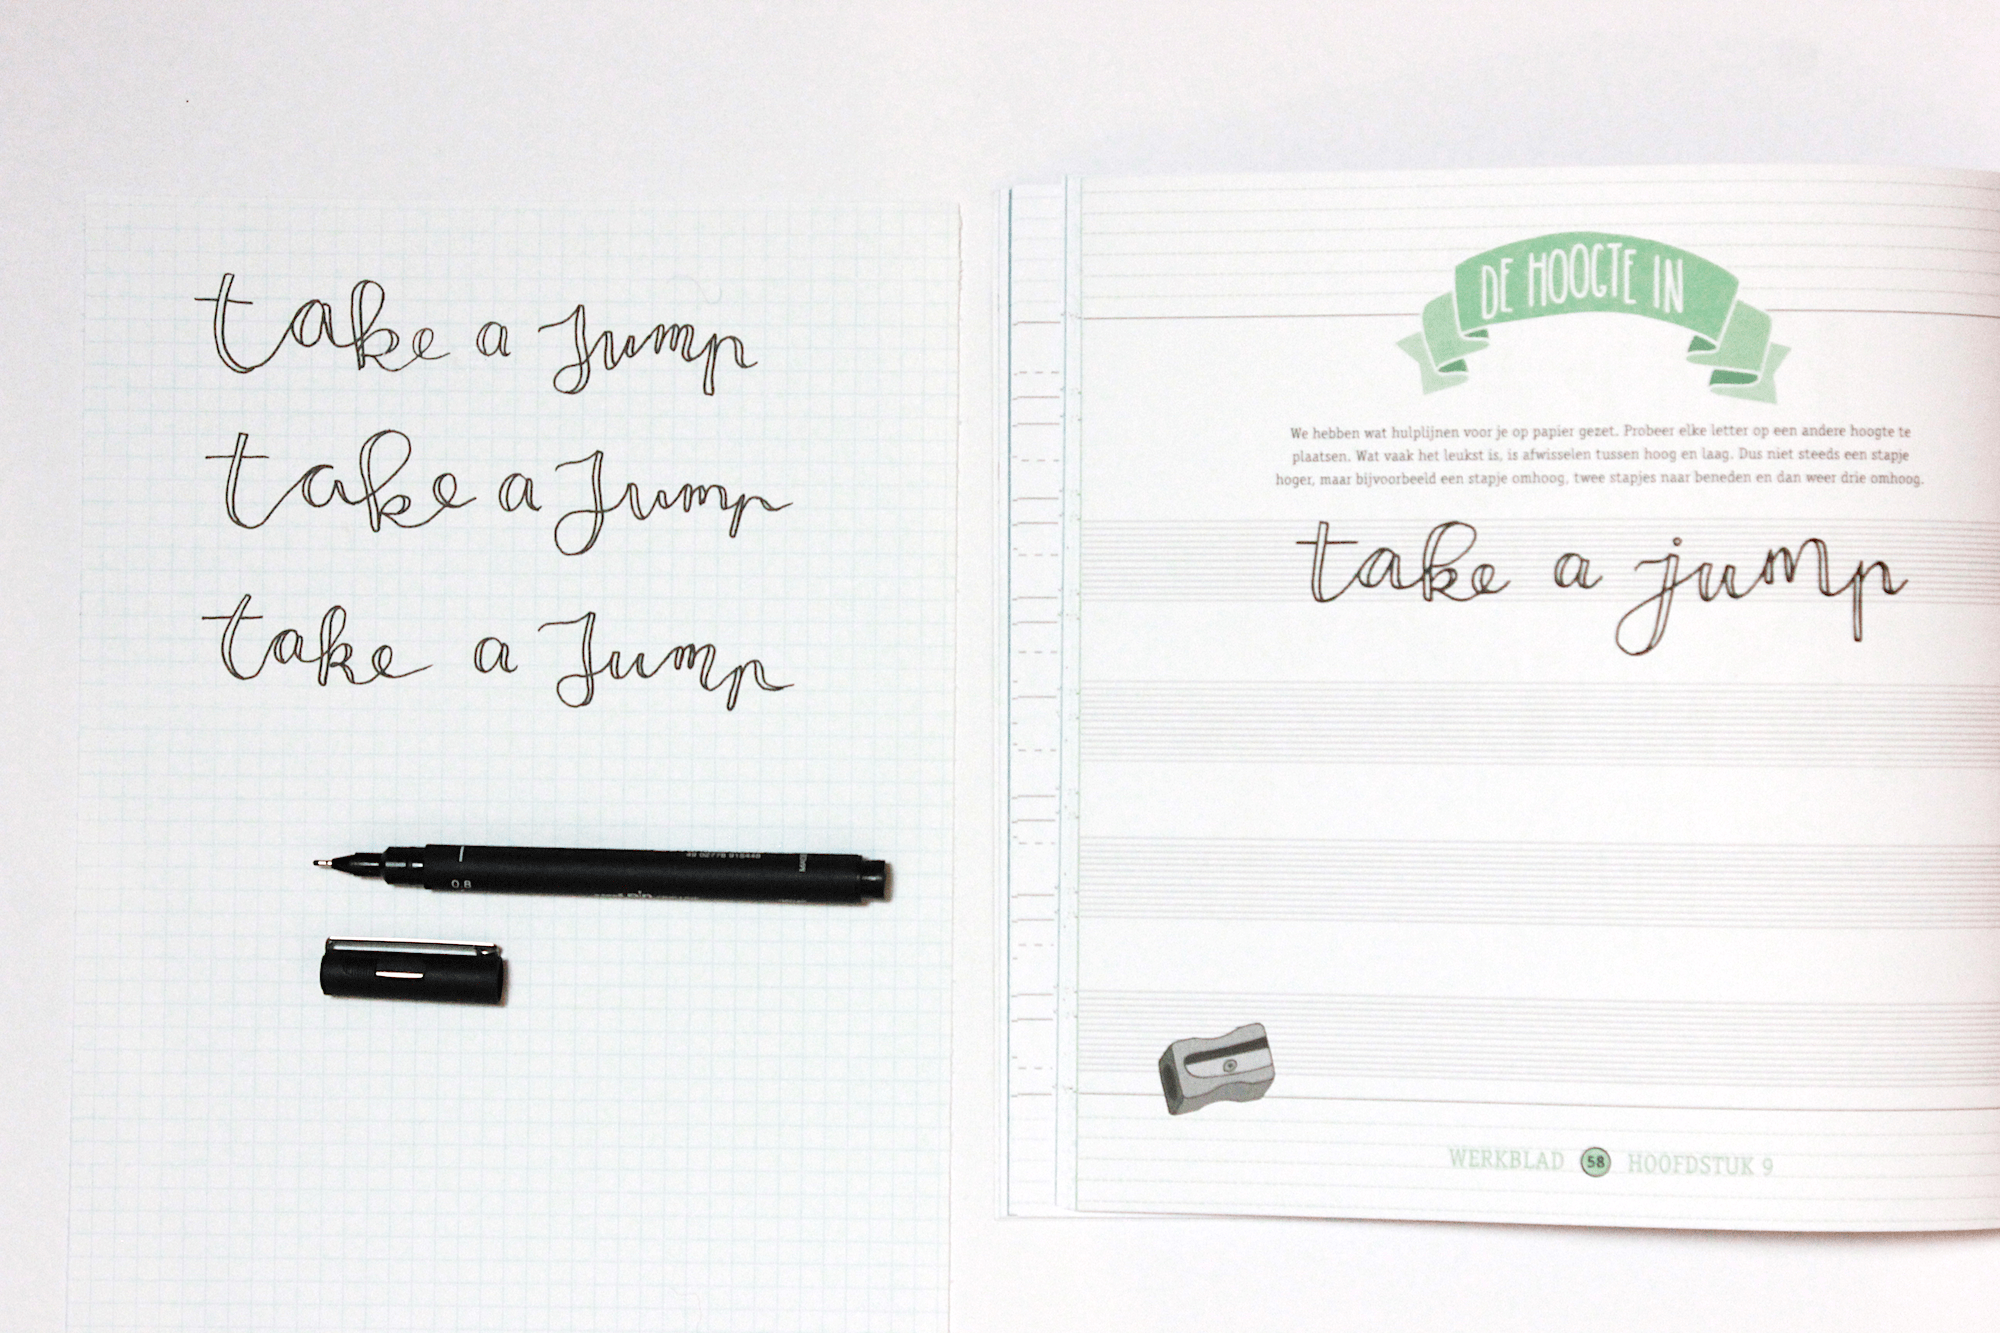 take a jump
take a jump
take a jump
0.8
pin
DE HOOGTE IN
We hebben wat hulplijnen voor je op papier gezet. Probeer elke letter op een andere hoogte te
plaatsen. Wat vaak het leukst is, is afwisselen tussen hoog en laag. Dus niet steeds een stapje
hoger, maar bijvoorbeeld een stapje omhoog, twee stapjes naar beneden en dan weer drie omhoog.
take a jump
WERKBLAD 58 HOOFDSTUK 9